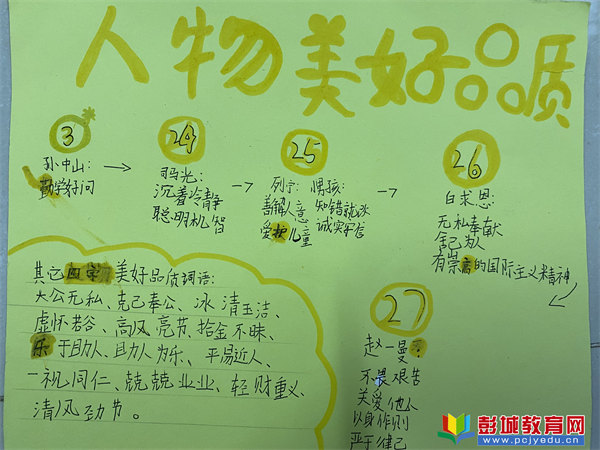 人物美好品质
3
孙中山：
勤学好问
24
司马光：
沉着冷静
聪明机智
25
列宁：
善解人意
爱护儿童
男孩：
知错就改
诚实守信
26
白求恩：
无私奉献
舍己为人
有崇高的国际主义精神
27
赵一曼：
不畏艰苦
关爱他人
以身作则
严于律己
其它四字美好品质词语：
大公无私、克己奉公、冰清玉洁、
虚怀若谷、高风亮节、拾金不昧、
乐于助人、助人为乐、平易近人、
一视同仁、兢兢业业、轻财重义、
清风劲节。
彭城教育网
www.pcjyedu.cn